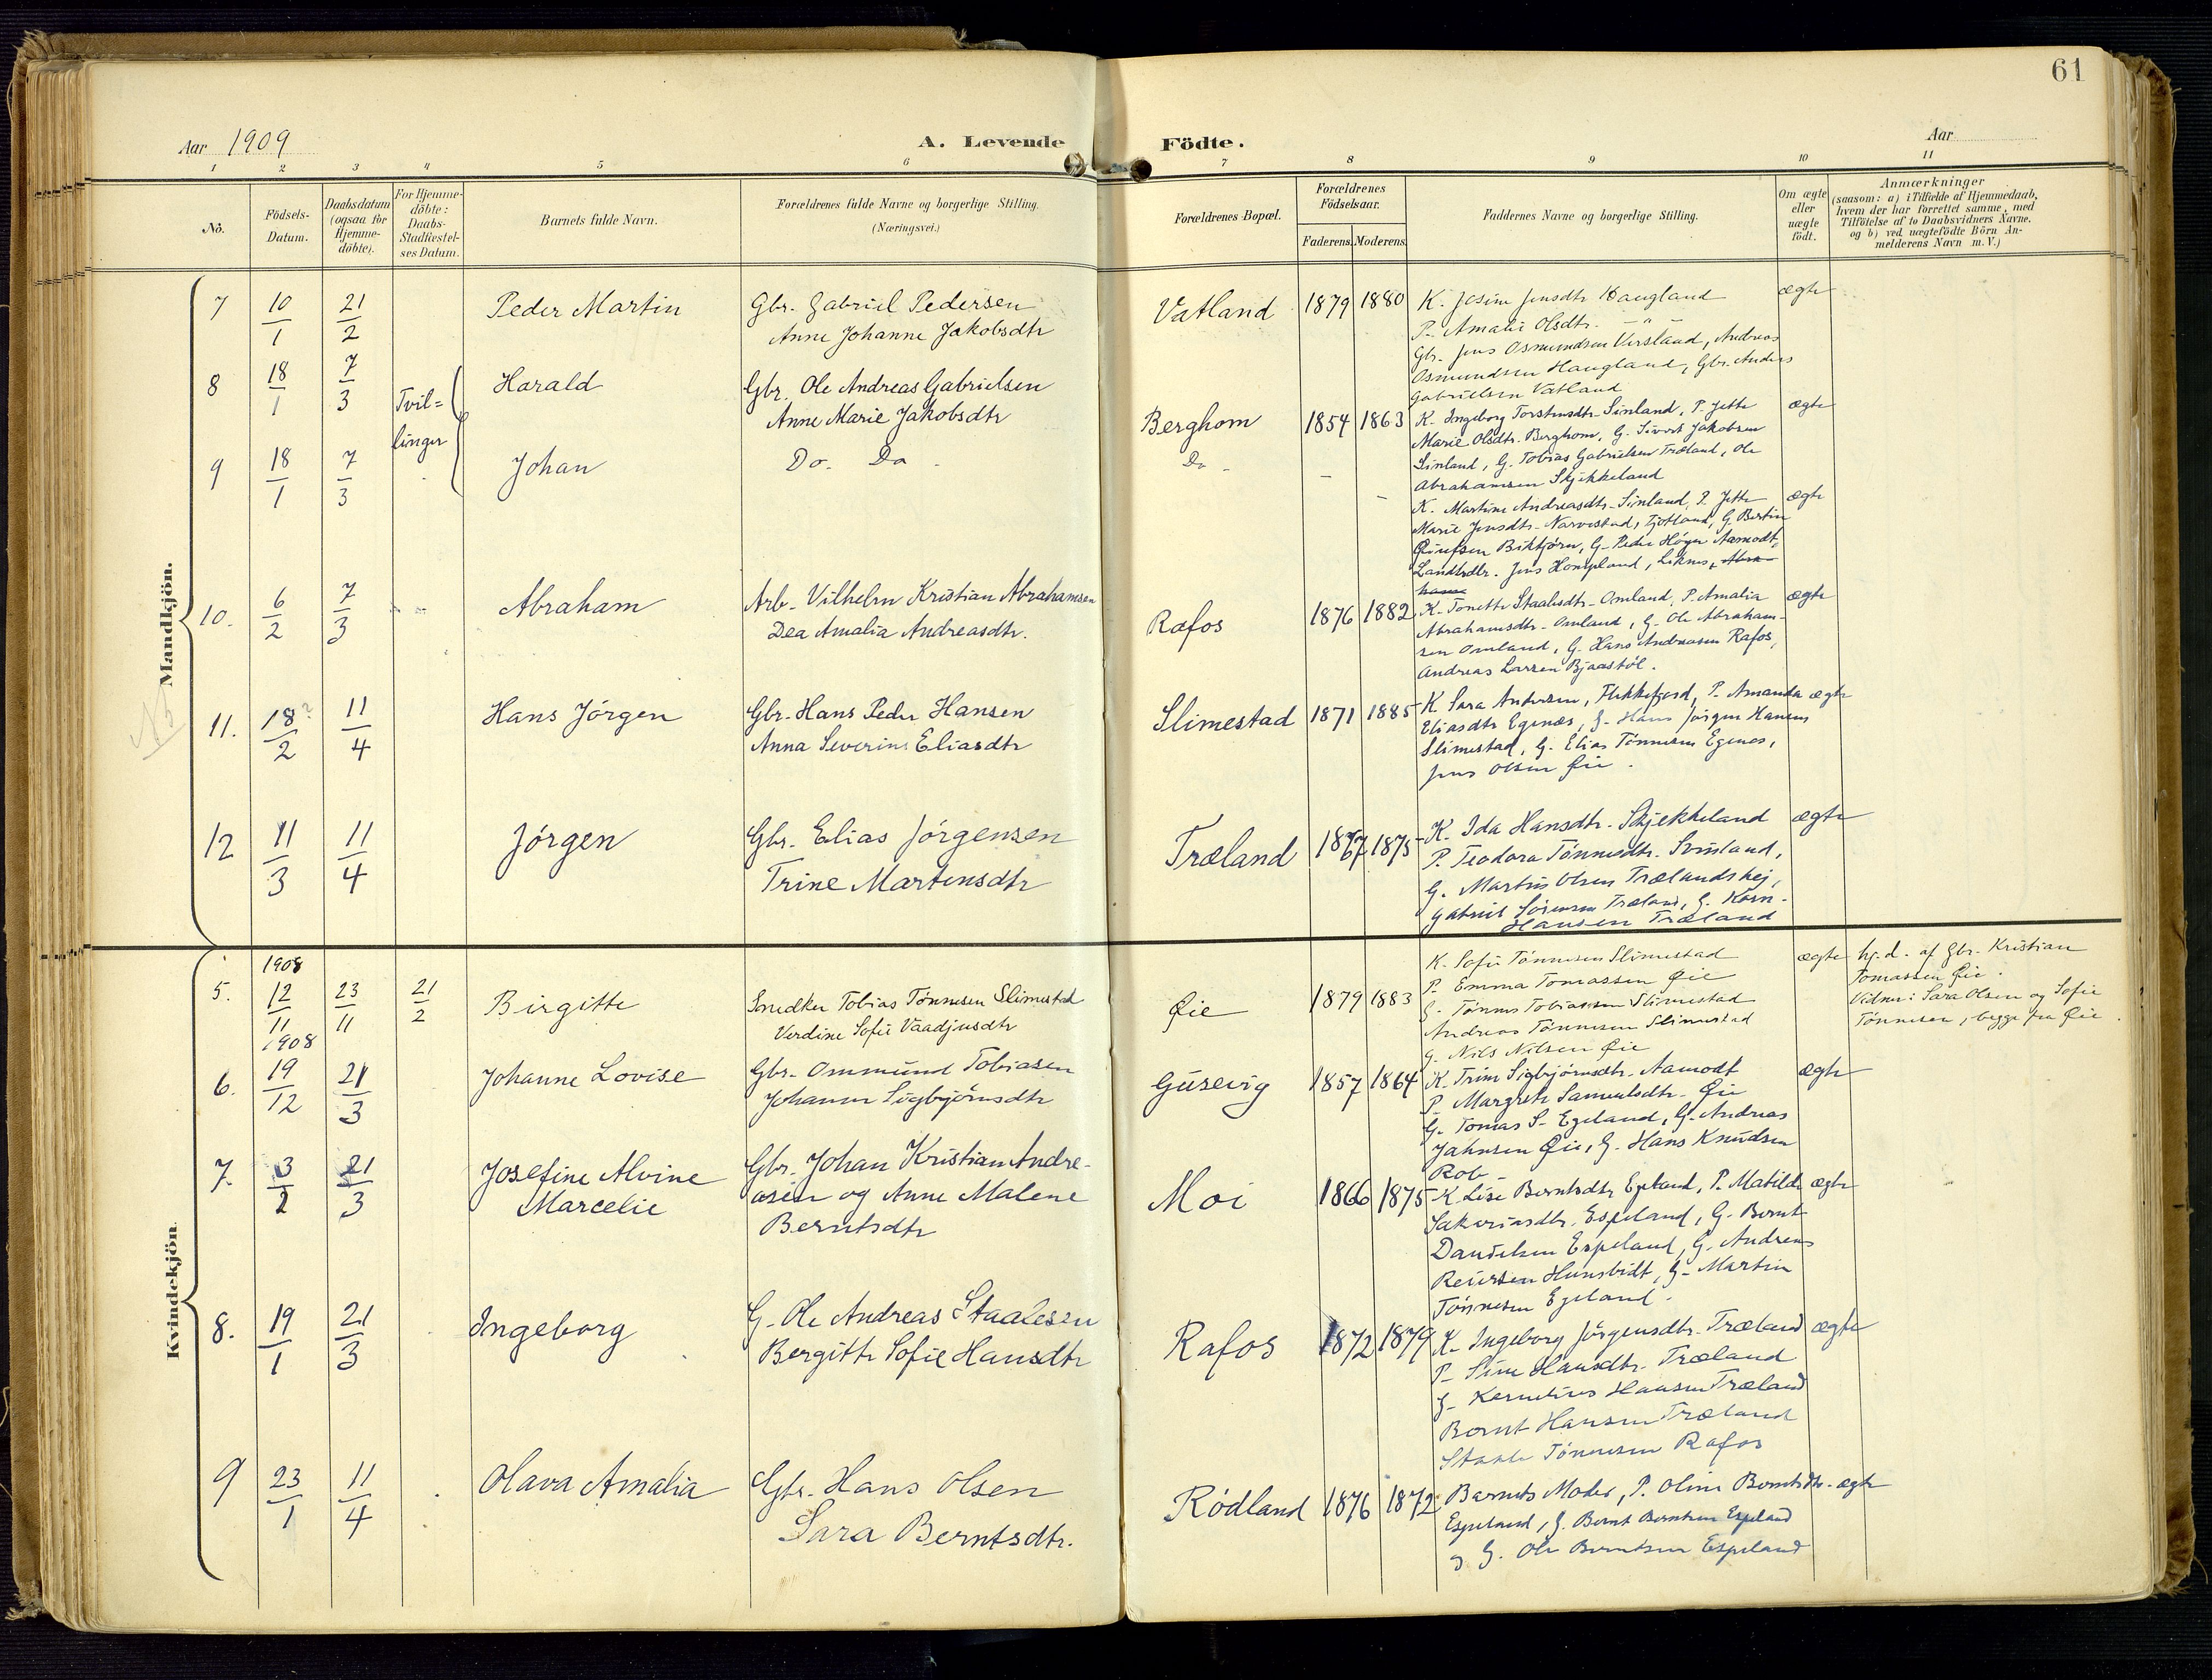 61
Aar 1909
A. Levende Födte.
Aar
1 2 3 4 5 6 7 8 9 10 11
No.
Födsels-
Datum.
Daabsdatum
(ogsaa för
Hjemme-
döbte).
For Hjemme-
döbte:
Daabs-
Stadfæstel-
ses Datum.
Barnets fulde Navn.
Forældrenes fulde Navne og borgerlige Stilling.
(Næringsvei.)
Forældrenes Bopæl.
Forældrenes
Födselsaar.
Faderens. Moderens.
Faddernes Navne og borgerlige Stilling.
Om ægte
eller
uægte
födt.
Anmærkninger
(saasom: a) i Tilfælde af Hjemmedaab,
hvem der har forrettet samme, med
Tilföielse af to Daabsvidners Navne.
og b) ved uægtefödte Börn An-
melderens Navn m. V.)
Mandkjön.
7 10/1 21/2 Peder Martin
Gbr. Gabriel Pedersen
Anne Johanne Jakobsdtr
Vatland 1879 1880
K. Josine Jensdtr Haugland
P. Amalie Olsdtr. — " —
Gbr. Jens Osmundsen Versland, Andreas
Osmundsen Haugland, Gbr. Anders
Gabrielsen Vatland
ægte
8 18/1 7/3 Tvil=
linger
Harald
Gbr. Ole Andreas Gabrielsen
Anne Marie Jakobsdtr
Berghom 1854 1863
K. Ingeborg Torstensdtr. Sinland, P. Jette
Marie Olsdtr. Berghom, G. Sivert Jakobsen
Sinland, G. Tobias Gabrielsen Træland, Ole
Abrahamsen Skjekkeland
ægte
9 18/1 7/3 Johan
Do. Do
Do - - -
K. Martine Andreasdtr. Sinland, P. Jette
Marie Jensdtr. Narvestad, Tjotland, G. Bertin
Birktjörn, G. Peder Höyer Aamodt,
Landhdlr. Jens Hompland, Liknes, Abra
hams
ægte
10. 6/2 7/3 Abraham
Arb. Vilhelm Kristian Abrahamsen
Dea Amalia Andreasdtr.
Rafos 1876 1882
K. Tonette Staalesdtr. Omland, P. Amalia
Abrahamsdtr. Omland, G. Ole Abraham-
sen Omland, G. Hans Andreasen Rafos,
Andreas Larsen Bjaastöl.
ægte
11. 18?/2 11/4 Hans Jörgen
Gbr. Hans Peder Hansen
Anna Severine Eliasdtr
Slimestad 1871 1885
K Sara Andersen, Flekkefjord, P. Amanda
Eliasdtr Egenæs, G. Hans Jörgen Hansen
Slimestad, G. Elias Tönnesen Egenes,
Jens Olsen Øie.
ægte
12 11/3 11/4 Jörgen
Gbr. Elias Jörgensen
Trine Martensdtr
Træland 1867 1875
K. Ida Hansdtr. Skjekkeland
P. Teodora Tönnesdtr. Svinland,
G. Martin Olsen Trælandshei,
Gabriel Sörensen Træland, G. Korn.
Hansen Træland
ægte
Kvindekjön.
5. 1908 12/11 23/11 21/2 Birgitte
Snedker Tobias Tönnesen Slimestad
Verdine Sofie Vaadjusdtr
Øie 1879 1883
K. Sofie Tönnesen Slimestad
P. Emma Tomassen Øie
G. Tönnes Tobiassen Slimestad
Andreas Tönnesen Slimestad
G. Nils Nilsen Øie
ægte
hj.d. af Gbr. Kristian
Tomassen Øie.
Vidner: Sara Olsen og Sofie
Tönnesen, begge fra Øie.
6. 1908 19/12 21/3 Johanne Lovise
Gbr. Ommund Tobiasen
Johanne Sigbjörnsdtr
Gusevig 1857 1864
K. Trine Sigbjörnsdtr. Aamodt
P. Margrete Samuelsdtr. Øie
G. Tomas S. Egeland, G. Andreas
Jahnsen Øie, G. Hans Knudsen
Rob
ægte
7. 3/2 21/3 Josefine Alvine
Marcelie
Gbr. Johan Kristian Andre-
asen og Anne Malene
Berntsdtr
Moi 1866 1875
K Lise Berntsdtr Egeland, P. Matilde
Sakariasdtr. Espeland, G. Bernt
Danielsen Espeland, G. Andreas
Reiersen Hunsbidt, G. Martin
Tönnesen Egeland.
ægte
8. 19/1 21/3 Ingeborg
G. Ole Andreas Staalesen
Bergitte Sofie Hansdtr
Rafos 1872 1879
K. Ingeborg Jörgensdtr. Træland
P. Sine Hansdtr. Træland
G. Kornelius Hansen Træland
Bernt Hansen Træland
Staale Tönnesen Rafos
ægte
9 23/1 11/4 Olava Amalia
Gbr. Hans Olsen
Sara Berntsdtr.
Rödland 1876 1872
Barnets Moder, P. Oline Berntsdtr.
Espeland, G. Bernt Berntsen Espeland
G. Ole Berntsen Espeland
ægte